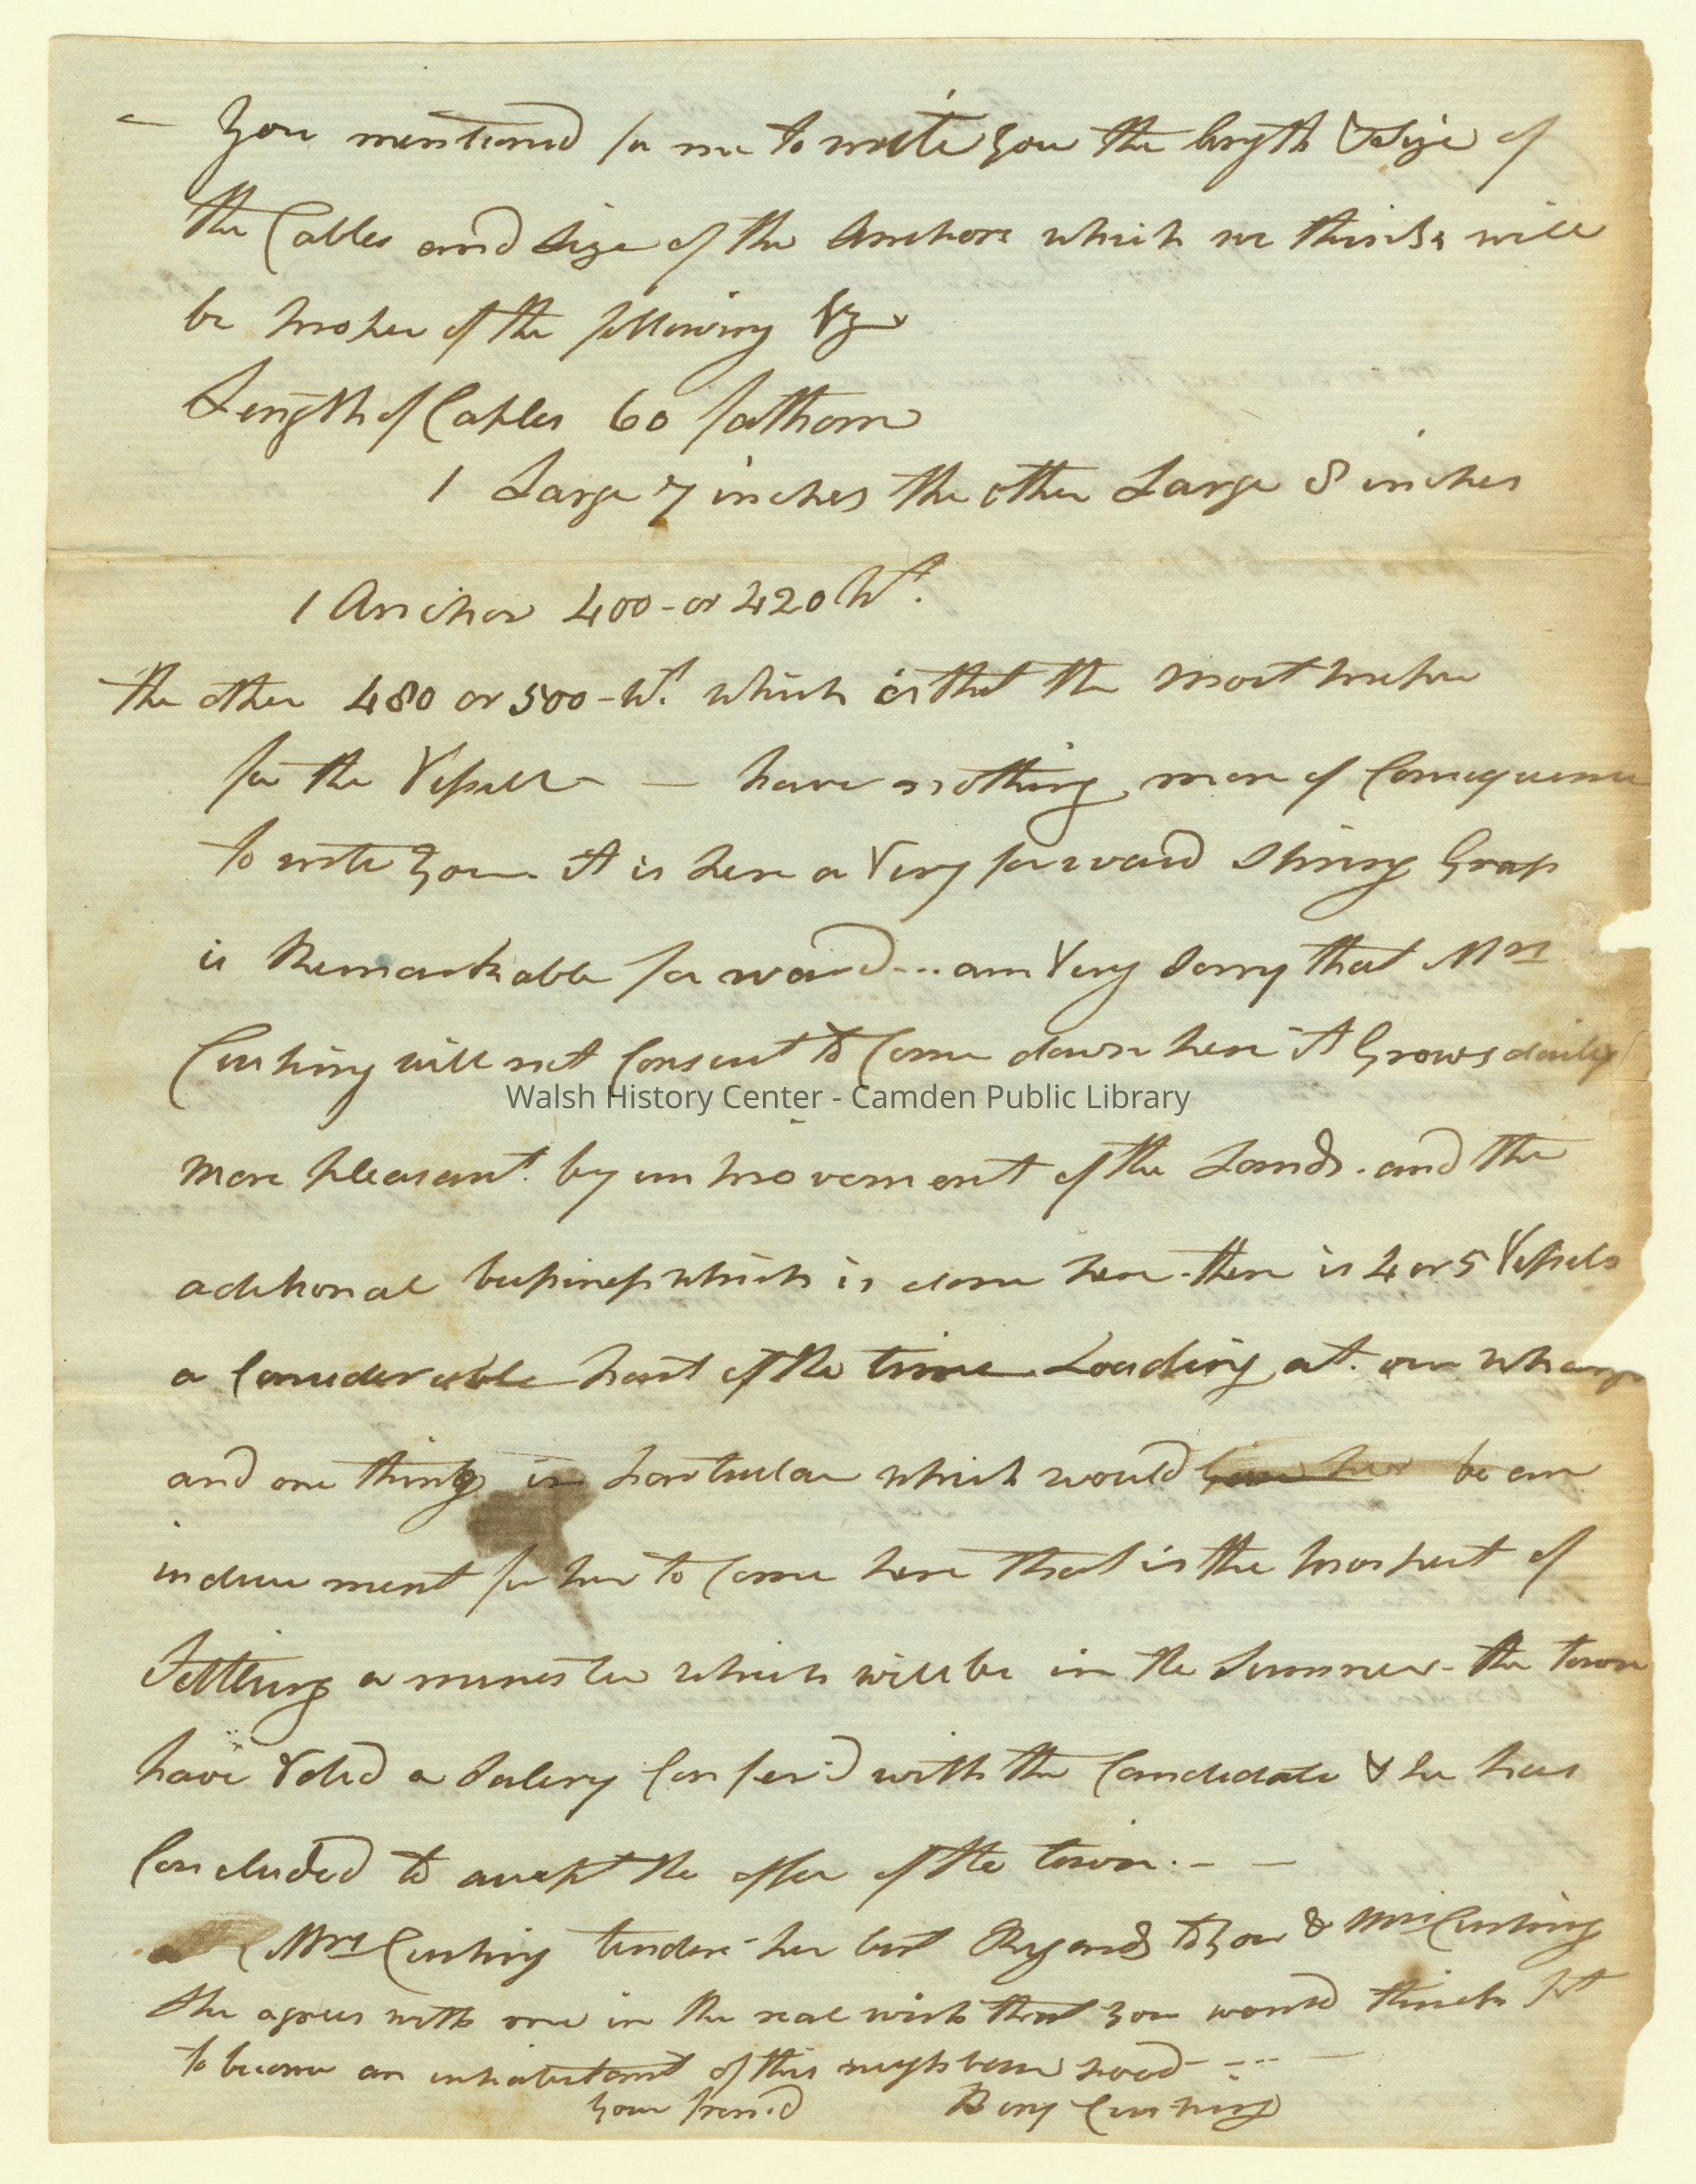 - You mentioned for me to write you the length & Size of
the Cables and Size of the Anchors which we think will
be proper of the following Viz
Length of Cables 60 fathom
1 Large 7 inches the other Large 8 inches
1 Anchor 400 - or 420 Wt.
the other 480 or 500 - Wt. which is that the most proper
for the Vessell - have nothing more of Consequence
to write you. it is here a Very forward Spring Grass
is Remarkable forward... am Very Sorry that Mrs
Cushing will not Consent to Come down here it Grows daily
Walsh History Center - Camden Public Library
more pleasant. by improvement of the Lands. and the
aditional bussiness which is done here - there is 4 or 5 Vessels
a Considerable part of the time Loading at our Wharfs
and one thing in particular which would be an
inducement for her to Come here that is the prospect of
Settling a minester which will be in the Summer - the town
have Voted a Salery Confer'd with the Candidate & he has
Concluded to accept the offer of the town. - -
Mrs Cushing tenders her best Regards to you & Mrs Cushing
She agrees with me in the real wish that you would think fit
to become an inhabitant of this neighbourhood - - -
your friend Benj Cushing